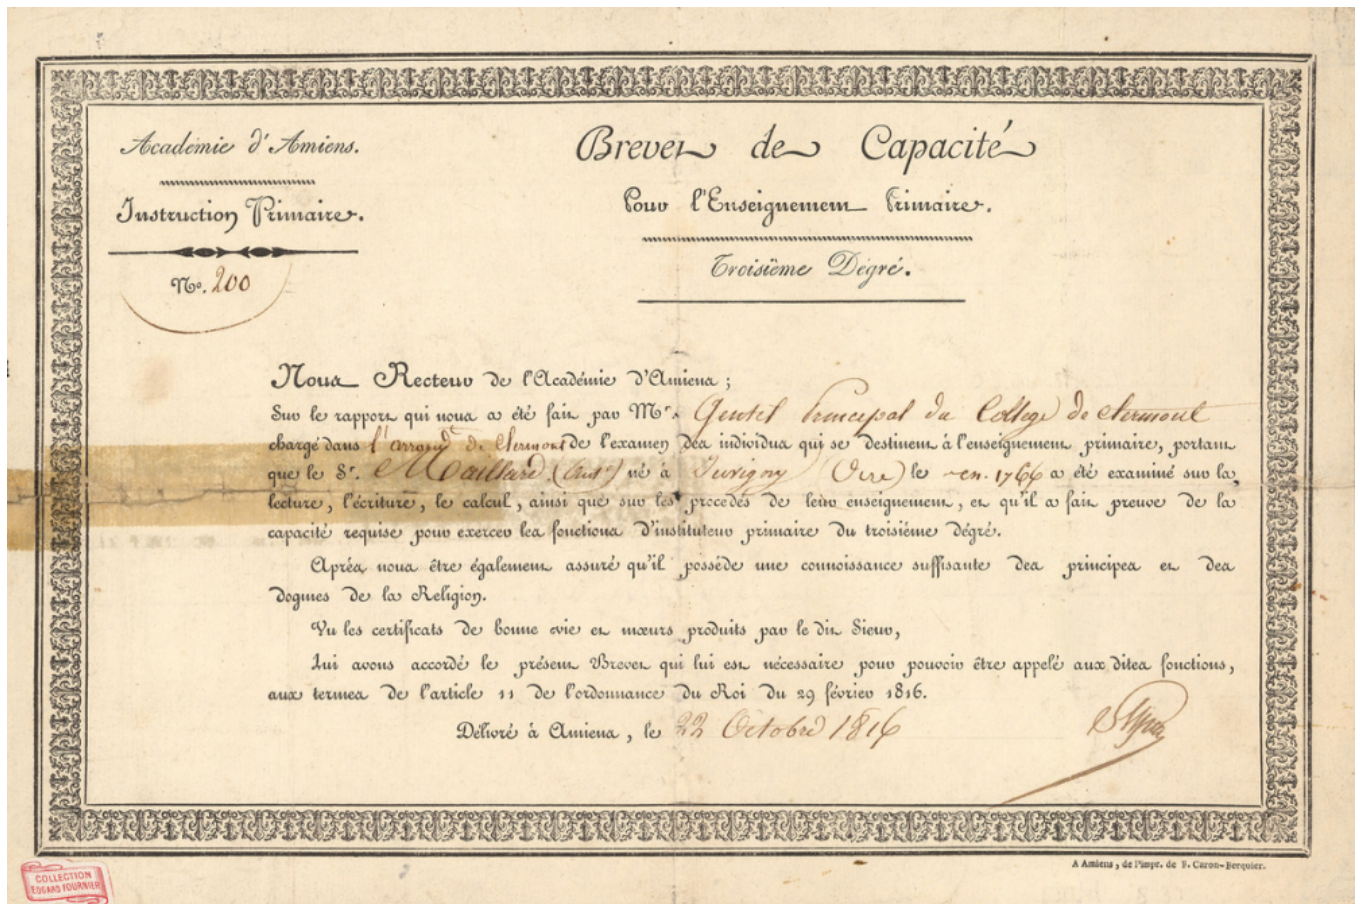 Académie d'Amiens.
Instruction Primaire.
No. 200
Brevet de Capacité
Pour l'Enseignement Primaire.
Troisième Dégré.
Nous Recteur de l'Académie d'Amiens ;
Sur le rapport qui nous a été fait par Mr. Gentil Principal du College de Clermont
chargé dans l'arrondt de Clermont de l'examen des individus qui se destinent à l'enseignement primaire, portant
que le Sr. Maillard né à Juvigny (Oise) le en 1766 a été examiné sur la
lecture, l'écriture, le calcul, ainsi que sur les procédés de leur enseignement, et qu'il a fait preuve de la
capacité requise pour exercer les fonctions d'instituteur primaire du troisième dégré.
Après nous être également assuré qu'il possède une connoissance suffisante des principes et des
dogmes de la Religion.
Vu les certificats de bonne vie et mœurs produits par le dit Sieur,
Lui avons accordé le présent Brevet qui lui est nécessaire pour pouvoir être appelé aux dites fonctions,
aux termes de l'article 11 de l'ordonnance du Roi du 29 février 1816.
Délivré à Amiens, le 22 Octobre 1816
A Amiens, de l'impr. de F. Caron-Berquier.
COLLECTION
EDGARD FOURNIER